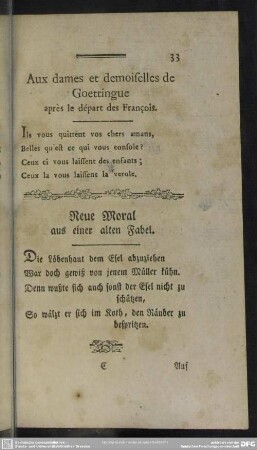 33
Aux dames et demoiselles de
Goettingue
après le départ des François.
Ils vous quittent vos chers amans,
Belles qu'est ce qui vous console?
Ceux ci vous laissent des enfants;
Ceux la vous laissent la verole.
Neue Moral
aus einer alten Fabel.
Die Löbenhaut dem Esel abzuziehen
War doch gewiß von jenem Müller kühn.
Denn wußte sich auch sonst der Esel nicht zu
schützen,
So wälzt er sich im Koth, den Räuber zu
bespritzen.
C
Auf